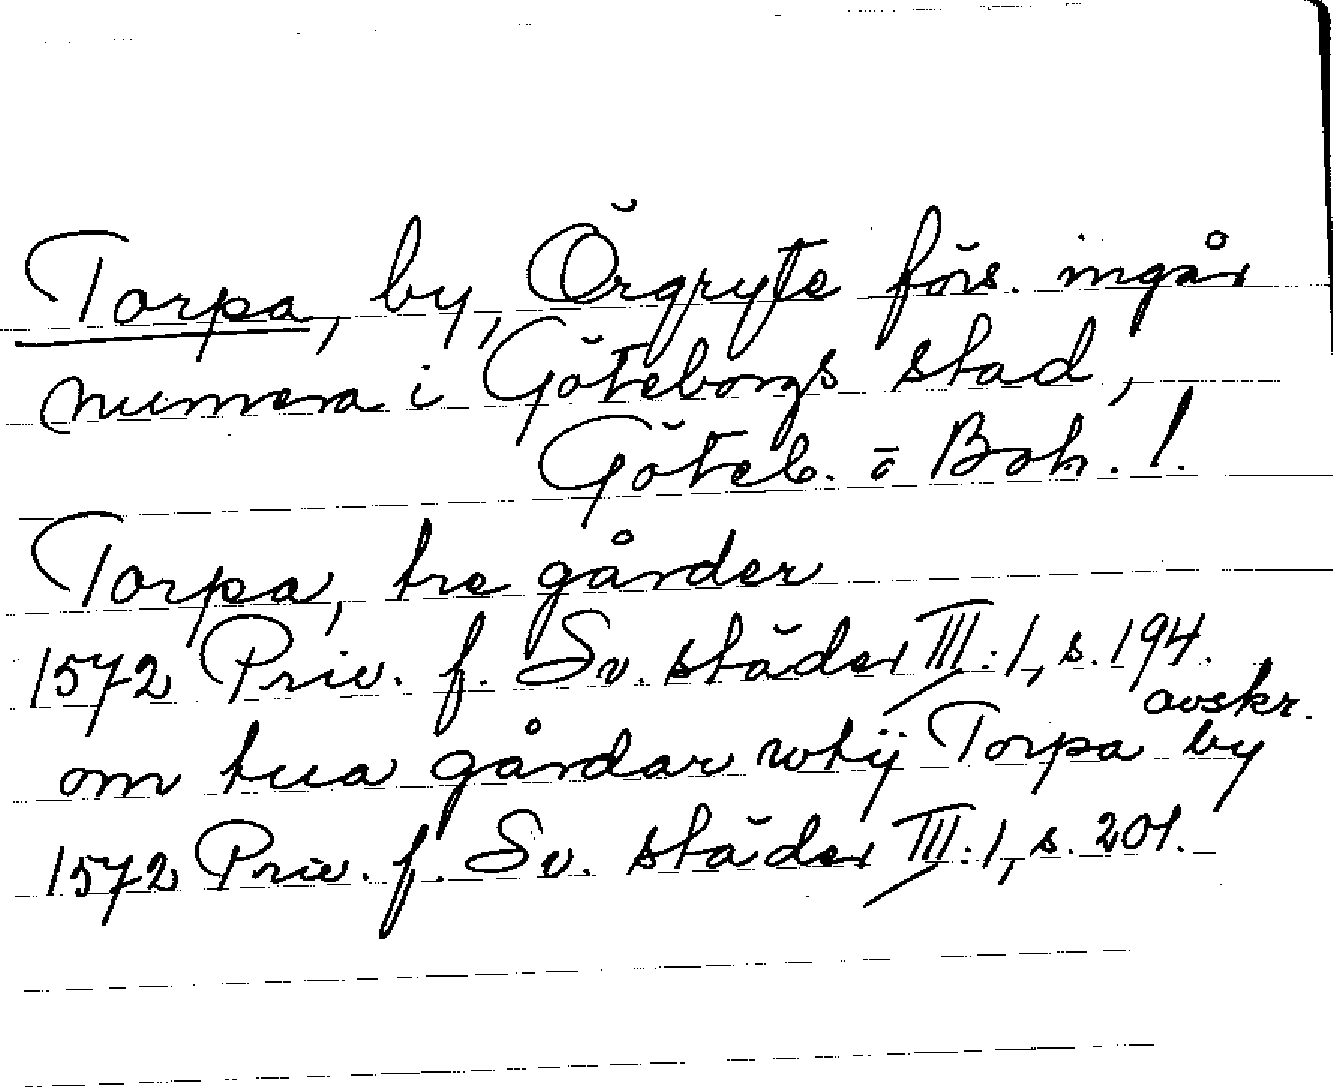 Torpa, by, Örgryte förs. ingår
numera i Göteborgs stad,
Göteb. o Boh. l.
Torpa, tre gårder
1572 Priv. f. Sv. städer III:1, s. 194.
avskr.
om tua gårdar wtij Torpa by
1572 Priv. f. Sv. städer III:1, s. 201.